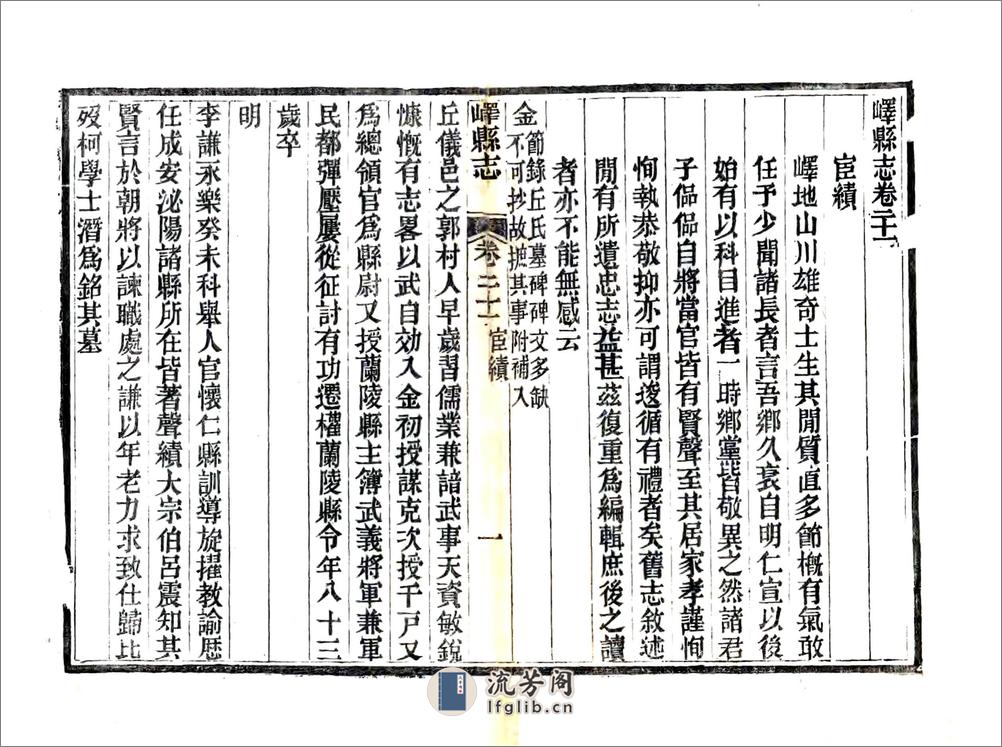 嶧縣志卷二十一
宦績
嶧地山川雄奇士生其閒質直多節槪有氣敢
任予少聞諸長者言吾鄉久衰自明仁宣以後
始有以科目進者一時鄉黨皆敬異之然諸君
子偘偘自將當官皆有賢聲至其居家孝謹恂
恂執恭敬抑亦可謂逡循有禮者矣舊志敘述
閒有所遺忠志益甚茲復重爲編輯庶後之讀
者亦不能無感云
金節錄丘氏墓碑碑文多缺
不可抄故摭其事附補入
嶧縣志
卷二十一
宦績
一
丘儀邑之郭村人早歲習儒業兼諳武事天資敏銳
慷慨有志畧以武自効入金初授謀克次授千戸又
爲總領官爲縣尉又授蘭陵縣主簿武義將軍兼軍
民都彈壓屢從征討有功遷權蘭陵縣令年八十三
歲卒
明
李謙永樂癸未科舉人官懷仁縣訓導旋擢教諭歷
任成安泌陽諸縣所在皆著聲績大宗伯呂震知其
賢言於朝將以諫職處之謙以年老力求致仕歸比
歿柯學士潛爲銘其墓
流芳阁
lfglib.cn